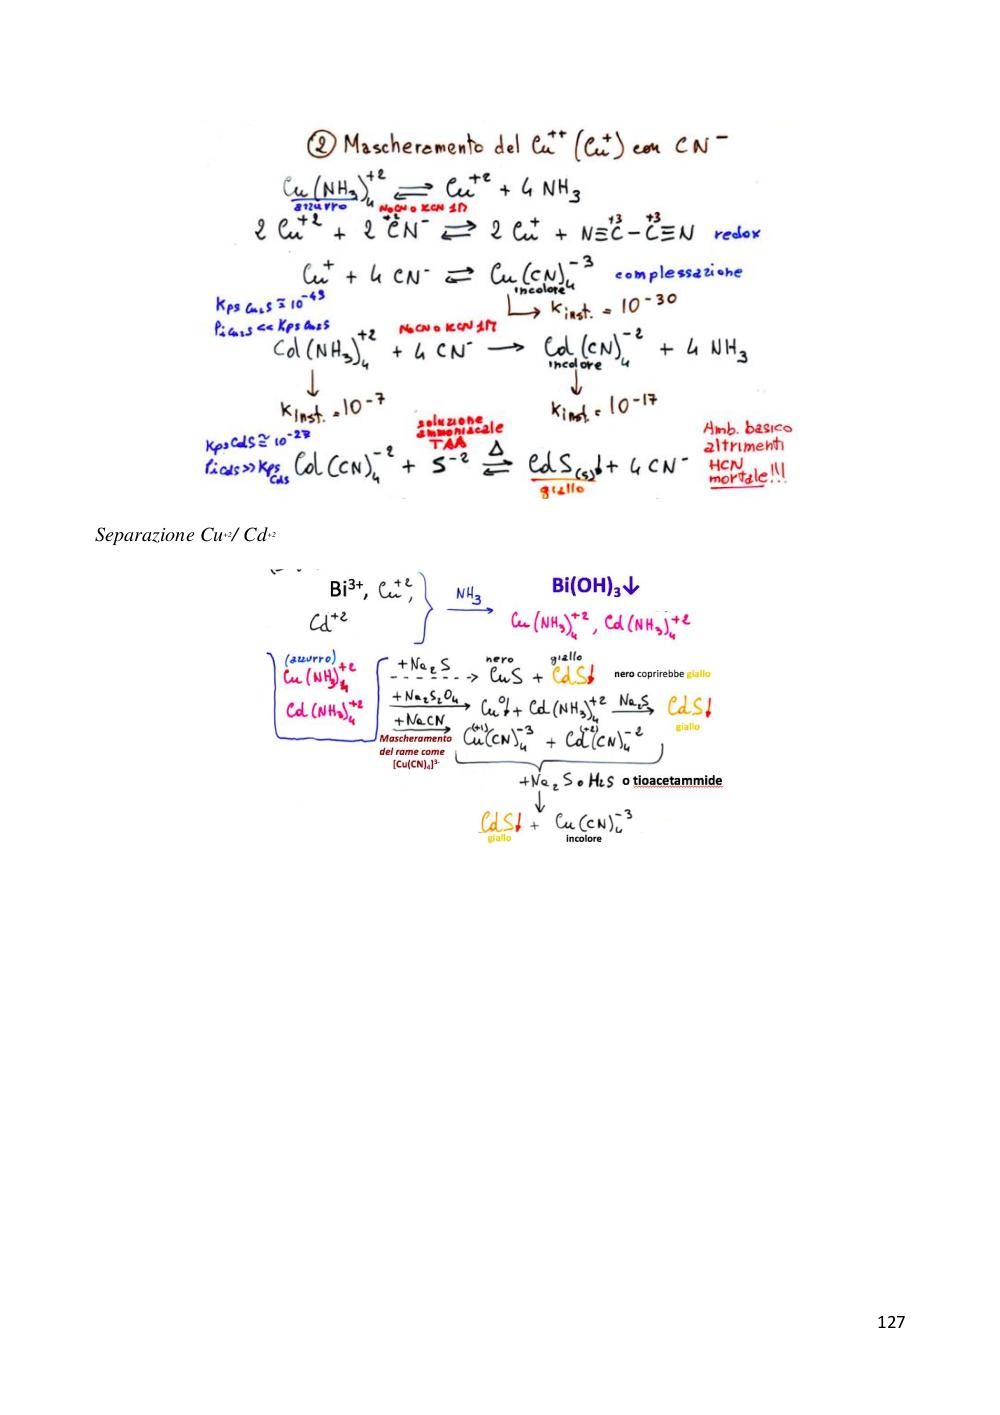 ② Mascheramento del Cu⁺⁺ (Cu⁺) con CN⁻
Cu(NH₃)₄⁺² ⇌ Cu⁺² + 4 NH₃
azzurro NaCN o KCN 1M
2 Cu⁺² + 2 CN⁻ ⇌ 2 Cu⁺ + N≡C−C≡N redox
+2 +3 +3
Cu⁺ + 4 CN⁻ ⇌ Cu(CN)₄⁻³ complessazione
incolore
Kps Cu₂S ≅ 10⁻⁴⁹
↳ Kinst. = 10⁻³⁰
Pi Cu₂S << Kps Cu₂S
NaCN o KCN 1M
Cd(NH₃)₄⁺² + 4 CN⁻ → Cd(CN)₄⁻² + 4 NH₃
incolore
↓ ↓
Kinst. = 10⁻⁷ Kinst. = 10⁻¹⁷
soluzione ammoniacale TAA
Kps CdS ≅ 10⁻²⁷
Pi CdS >> Kps CdS
Cd(CN)₄⁻² + S⁻² ⇌ CdS(s)↓ + 4 CN⁻
Δ
giallo
Amb. basico
altrimenti
HCN
mortale!!!
Separazione Cu+2/ Cd+2
Bi³⁺, Cu⁺², Cd⁺² } NH₃ → Bi(OH)₃↓
Cu(NH₃)₄⁺², Cd(NH₃)₄⁺²
(azzurro)
Cu(NH₃)₄⁺²
Cd(NH₃)₄⁺²
nero giallo
+Na₂S ⇢ CuS + CdS↓ nero coprirebbe giallo
+Na₂S₂O₄ → Cu⁰↓ + Cd(NH₃)₄⁺² Na₂S → CdS↓
giallo
+NaCN → Cu(CN)₄⁻³ + Cd(CN)₄⁻²
(+1) (+2)
Mascheramento
del rame come
[Cu(CN)₄]³⁻
+Na₂S o H₂S o tioacetammide
↓
CdS↓ + Cu(CN)₄⁻³
giallo incolore
127